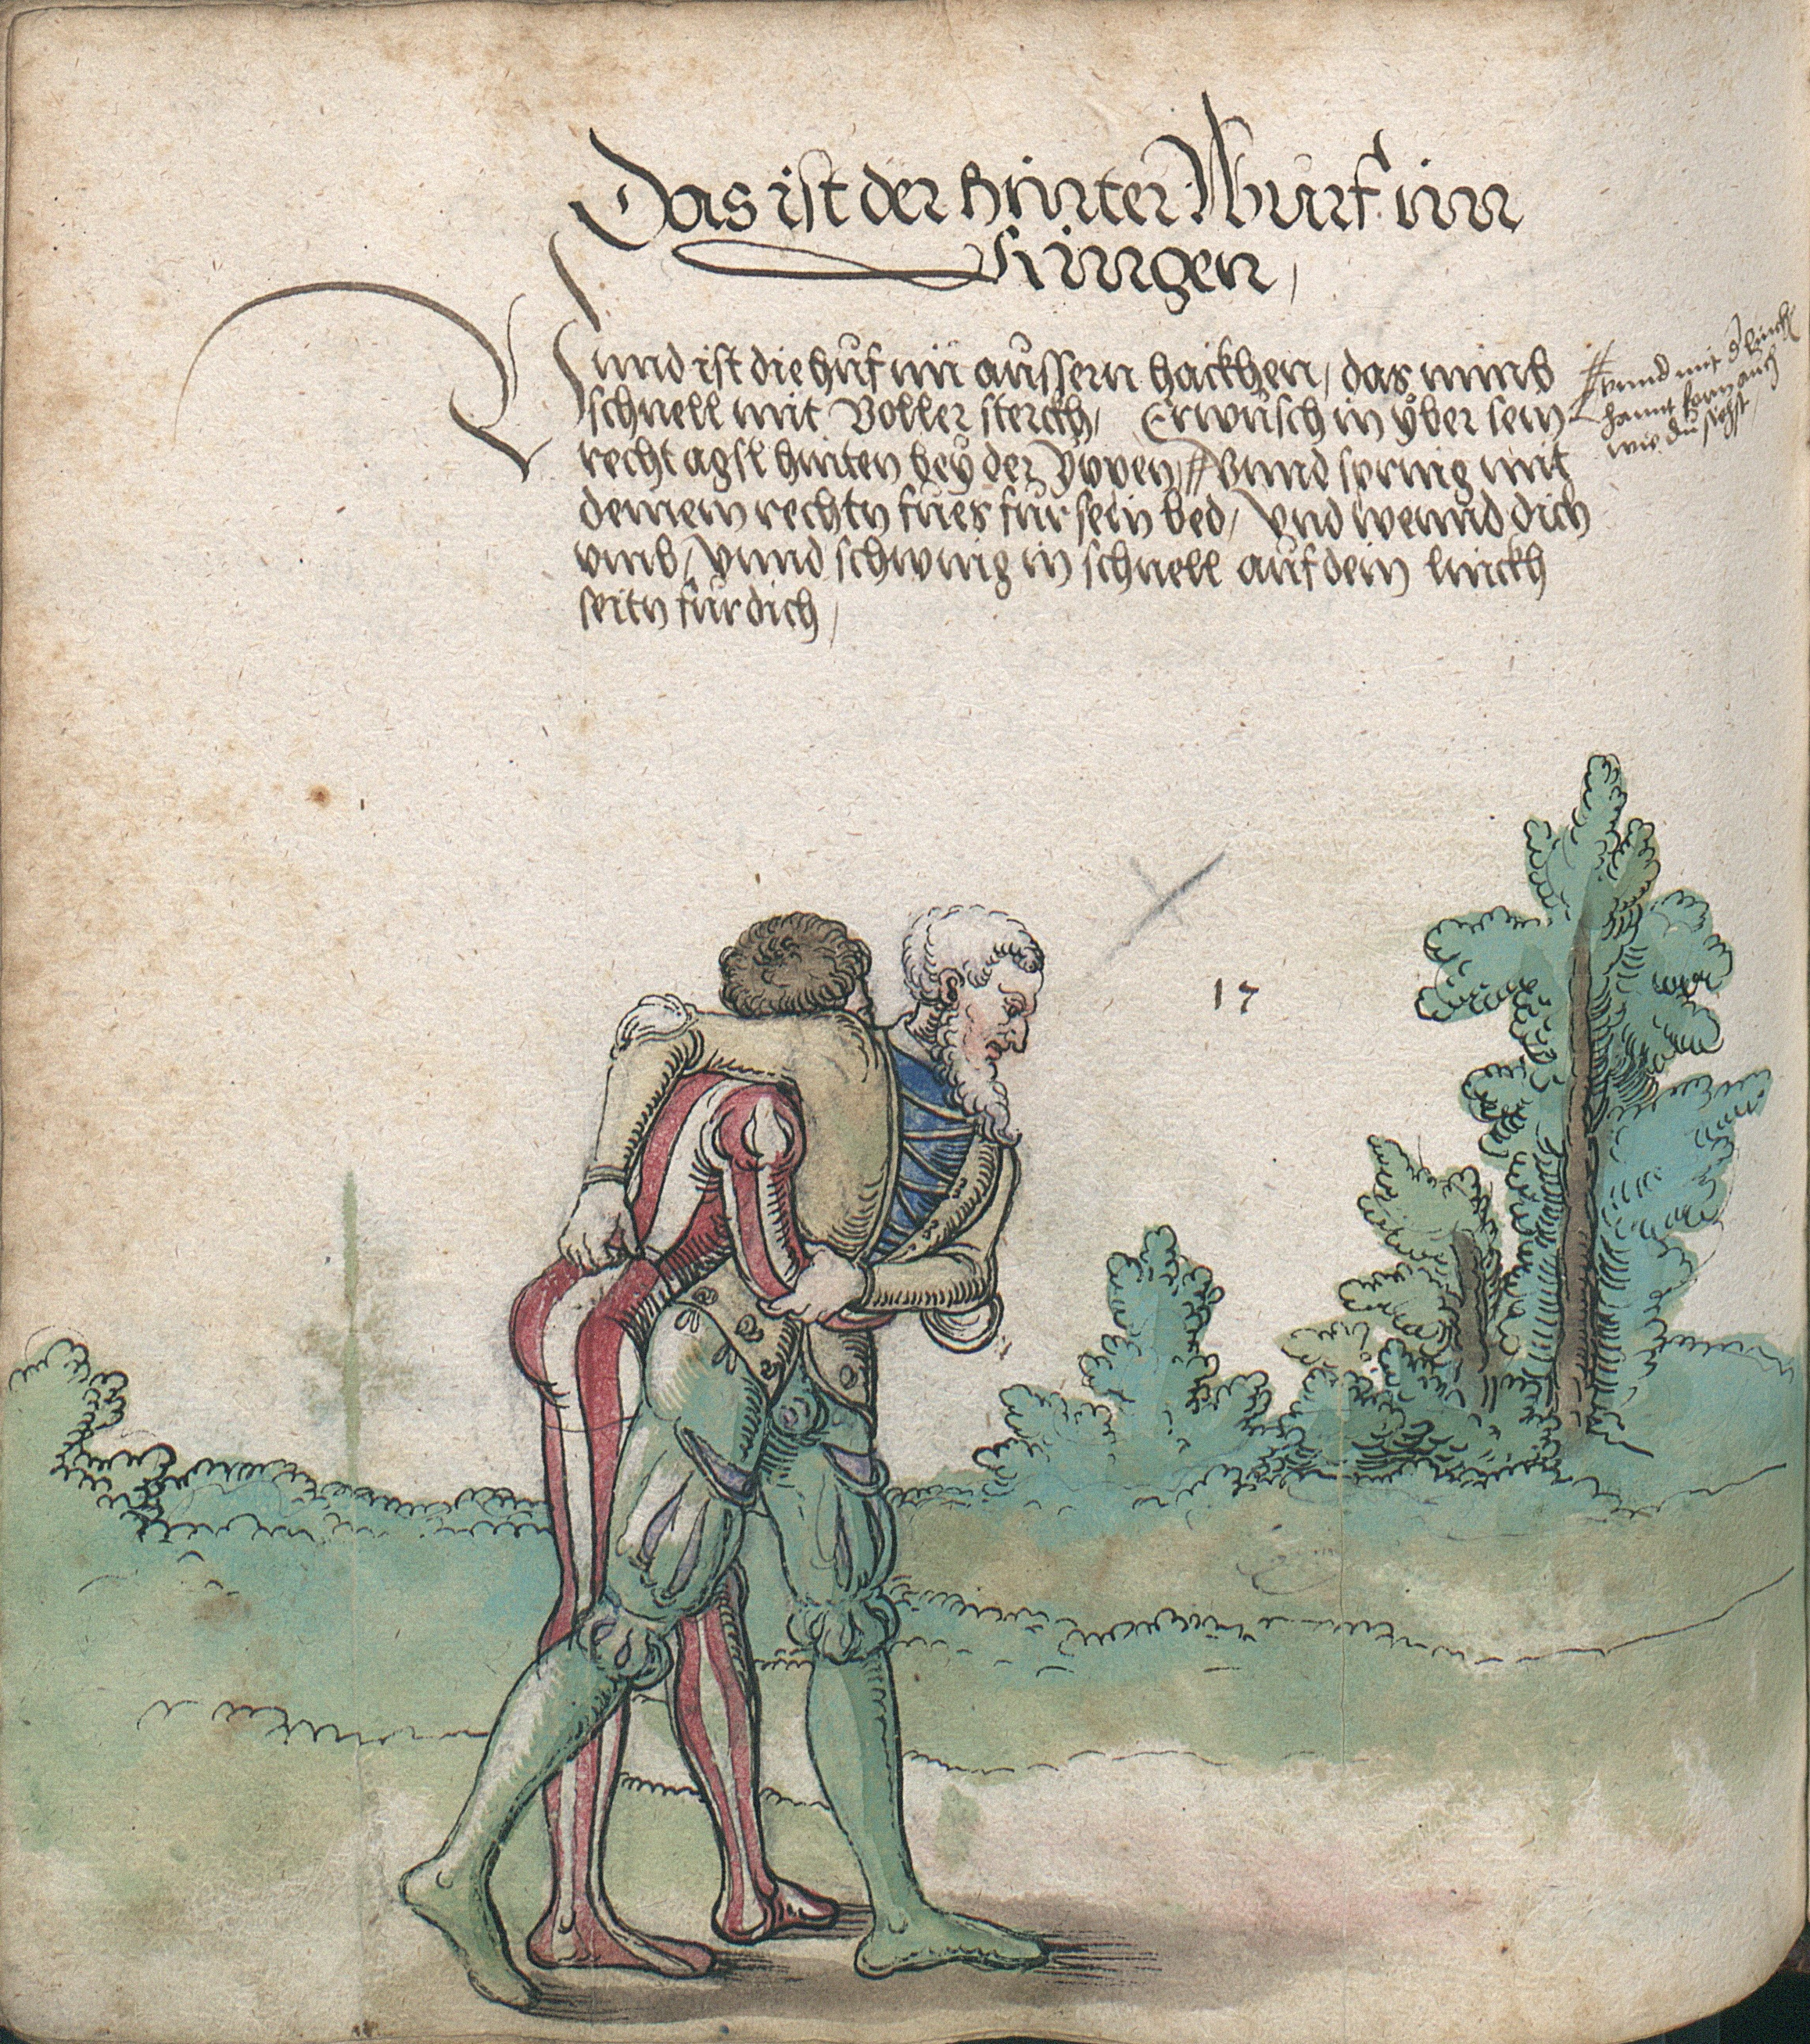 Das ist der hinter Wurf im
Ringen,
Unnd ist die huf im aussern hackhen, das nimb
schnell mit voller sterckh, Erwüsch in yber sein
recht agsl hinten bey der Yppen, # Vnnd spring mit
deinem rechtn fues für sein bed, Vnd wennd dich
vmb, Vnnd schwing in schnell auf dein linckh
seitn für dich,
# vnnd mit d linckh
hannt vorn auch
wie du sichst
17